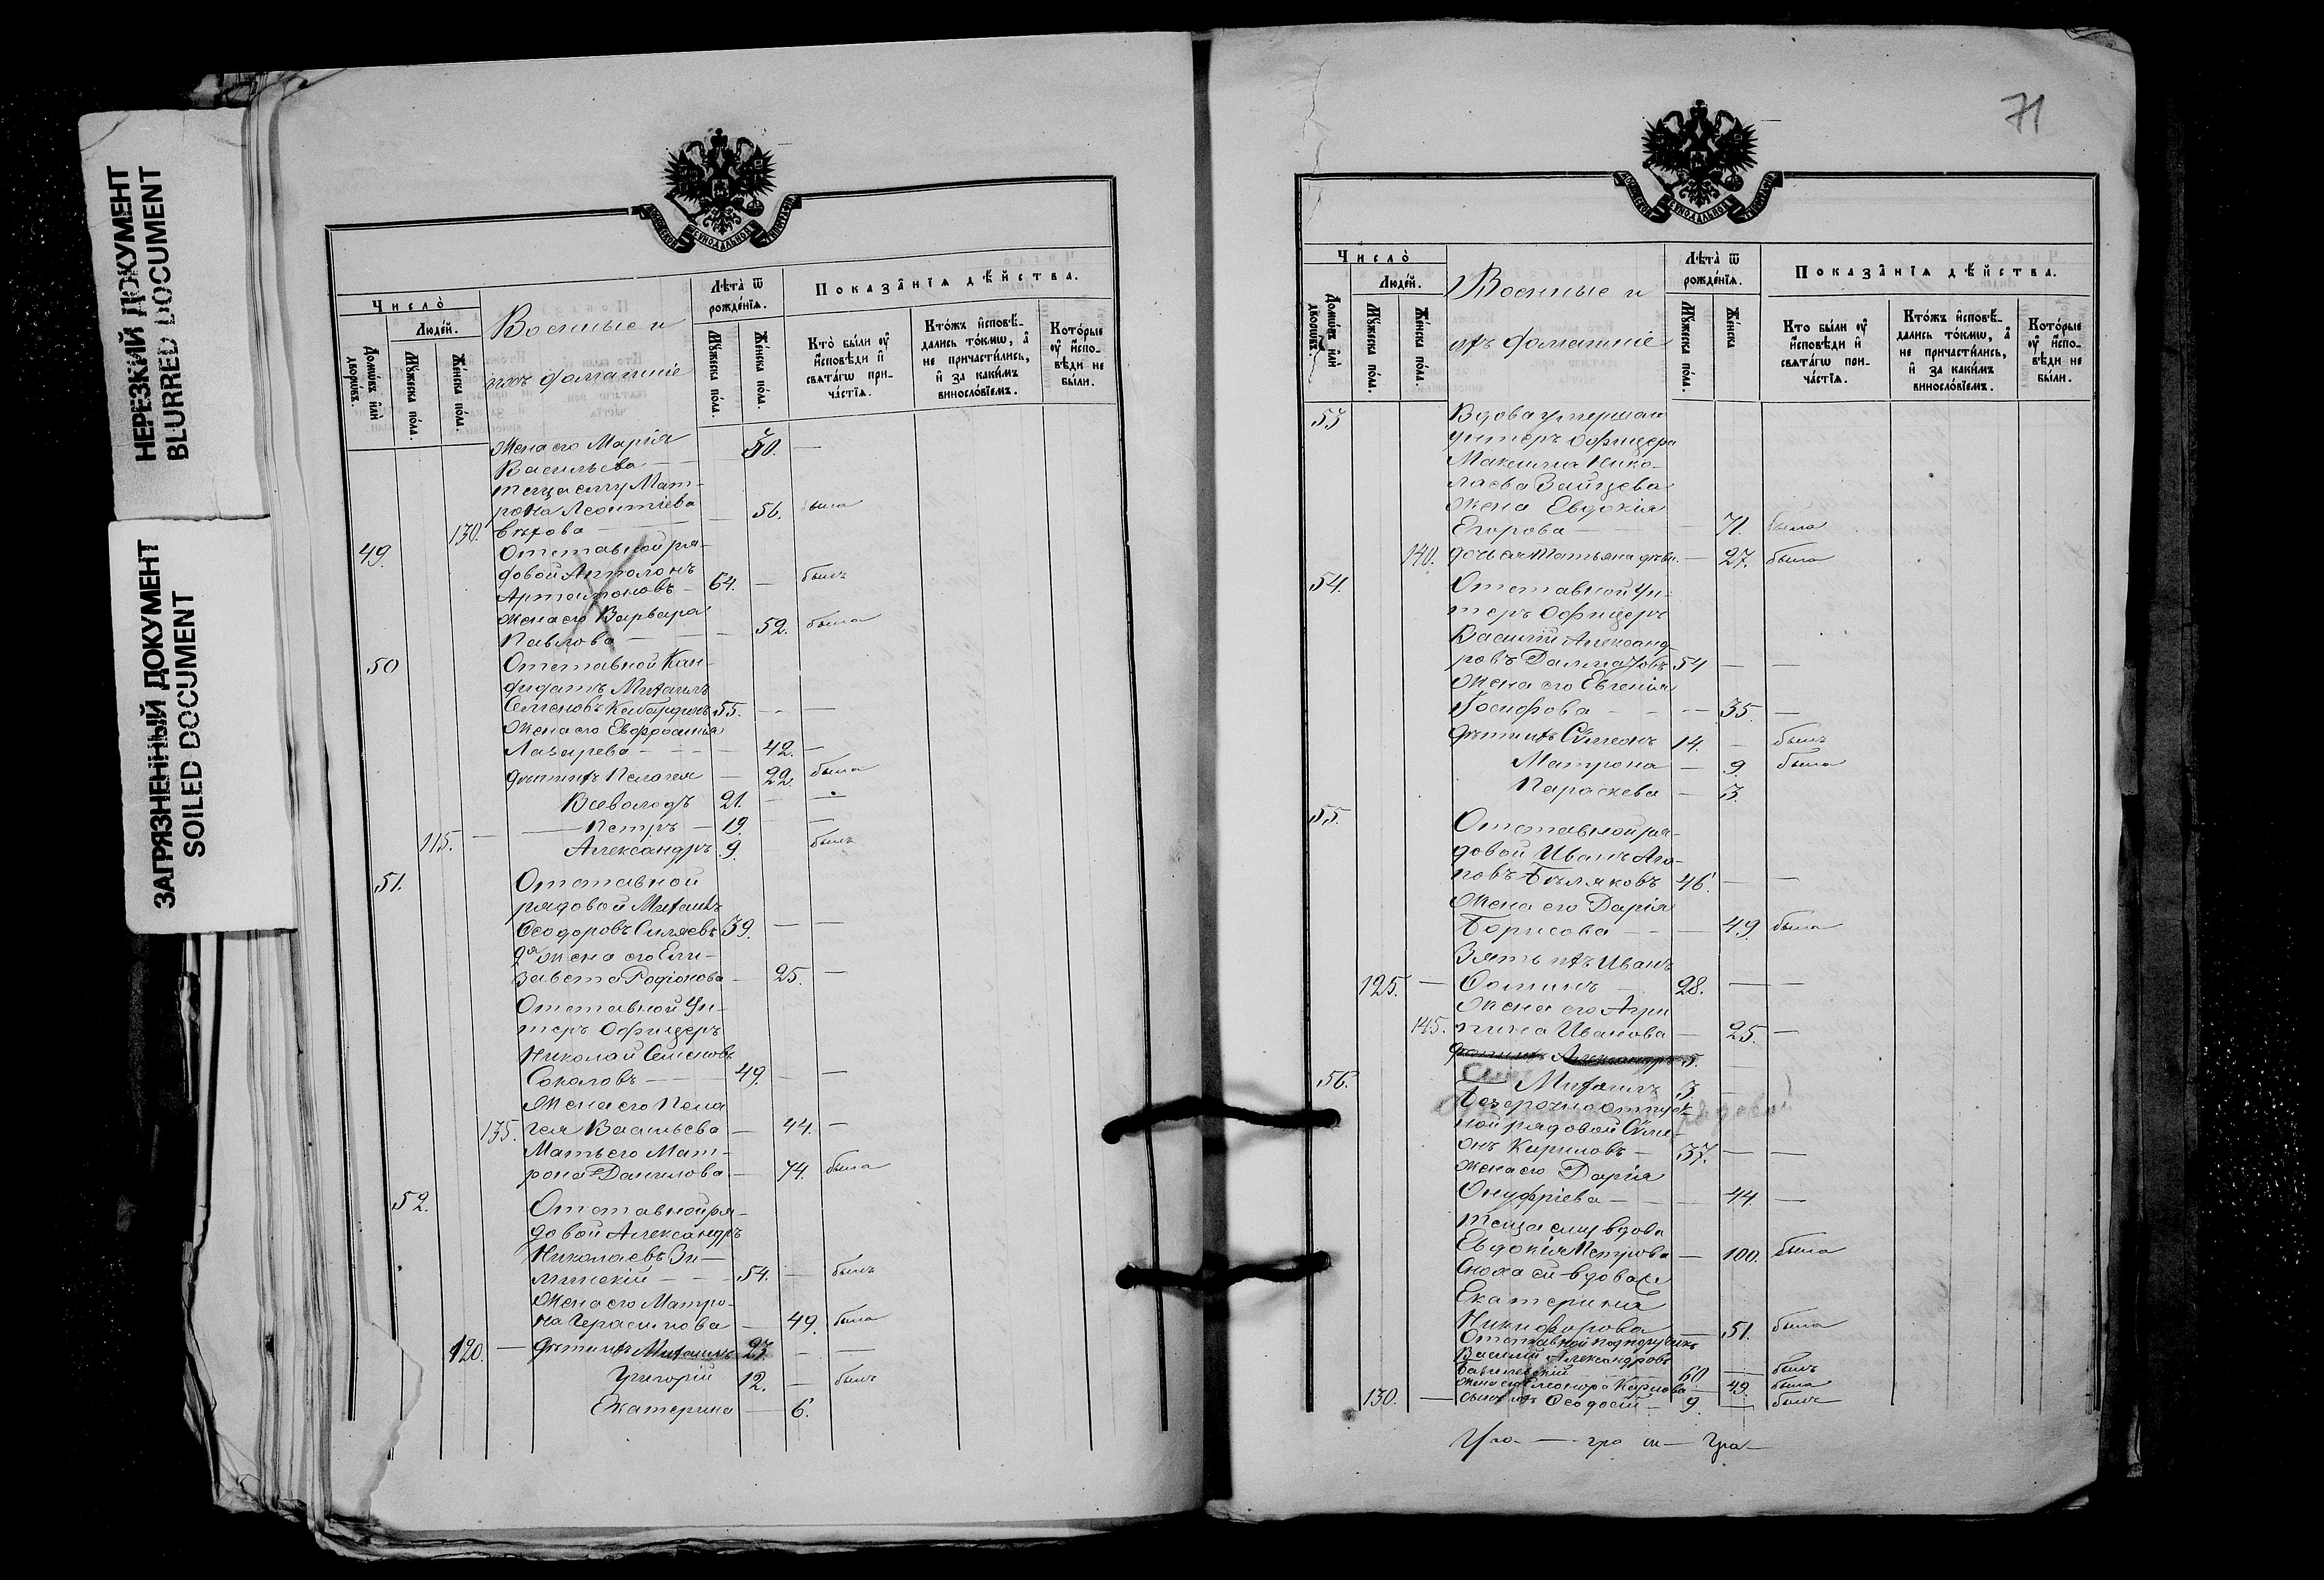 НЕРЕЗКИЙ ДОКУМЕНТ
BLURRED DOCUMENT
ЗАГРЯЗНЕННЫЙ ДОКУМЕНТ
SOILED DOCUMENT
Число̀
Людéй.
Домѡ́въ и҆лѝ дворѡ́въ.
Мꙋ́жеска по́ла.
Же́нска по́ла.
Военные и
ихъ домашніе
Лѣ́та ѿ рожде́нїѧ.
Мꙋ́жеска по́ла.
Же́нска по́ла.
Показа̑нїѧ дѣ́йства.
Кто̀ бы́ли оу҆ и҆сповѣди и҆ свѧта́гѡ при- ча́стїѧ.
Кто́жъ и҆сповѣ́- дались то́кмѡ, а҆ не причасти́лись, и҆ за каки́мъ винослóвїемъ.
Кото́рые оу҆ и҆спо- вѣди не бы́ли.
Жена его Марія
Васильева — 50. —
теща ему Мат-
рона Леонтіева 56. была
130. вдова
49. Отставной ря-
довой
Артамоновъ — 64. — былъ
жена его Варвара
Павлова — 52. была
50 Отставной Кан-
дидатъ Михаилъ
Семеновъ 55. — —
Жена его Евфросинья
Лазарева — 42. —
дѣти ихъ Пелагея — 22. была
Всеволодъ 21. — —
Петръ — 19. —
115. Александръ 9. былъ
51. Отставной
рядовой Михаилъ
Ѳеодоровъ 39. — —
2я жена его Ели-
завета Родіонова — 25. —
Отставной Ун-
теръ Офицеръ
Николай Семеновъ
Соколовъ — 49. — —
Жена его Пела
135. гея Васильева — 44. —
Мать его Мат-
рона Данилова — 74. была
52. Отставной ря-
довой Александръ
Николаевъ Зи-
минскій — 54. — былъ
Жена его Матро-
на Герасимова — 49. была
120. — дѣти ихъ Михаилъ 23. — —
Григорій 12. — былъ
Екатерина — 6.
71
Число̀
Людéй.
Домѡ́въ и҆лѝ дворѡ́въ.
Мꙋ́жеска по́ла.
Же́нска по́ла.
Военные и
ихъ домашніе
Лѣ́та ѿ рожде́нїѧ.
Мꙋ́жеска по́ла.
Же́нска
Показа̑нїѧ дѣ́йства.
Кто бы́ли оу҆ и҆сповѣди и҆ свѧта́гѡ при- ча́стїѧ.
Кто́жъ и҆сповѣ́- дались то́кмѡ, а҆ не причасти́лись, и҆ за каки́мъ винослóвїемъ.
Кото́рые оу҆ и҆спо- вѣди не бы́ли.
53 Вдова умершаго
унтеръ Офицера
Максима Нико-
лаева Зайцева
жена Евдокія
Егорова — 71. была
140. дочь ея Татьяна дѣв. — 27. была
54. Отставной Ун-
теръ Офицеръ
Василій Александ-
ровъ 54 — —
Жена его Евгенія
Іосифова — 35. —
дѣти ихъ Сѵмеонъ 14. — былъ
Матрона — 9. была
Параскева — 3.
55. Отставной ря-
довой Иванъ Ага-
повъ Бѣляковъ 46. — —
Жена его Дарія
Борисова — 49. была
Зять ихъ Иванъ
125. — Ѳоминъ 28. — —
Жена его Агри
145. пина Иванова — 25. —
Александръ 5.
Михаилъ 3 —
56. Безсрочно отпуск
ной рядовой Сѵме-
онъ Кириловъ — 37. — —
жена его Дарія
Онуфріева — 44. —
теща ему вдова
Евдокія Петрова — 100. была
сноха ей вдова же
Екатерина
Никифорова — 51. была
Отставной подпоручикъ
Василій Александровъ
60 — былъ
Карпова — 49. была
130. — сынъ ихъ Ѳеодосій — 9 — былъ